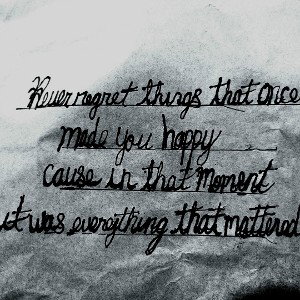 Never regret things that once
made you happy
cause in that moment
it was everything that mattered